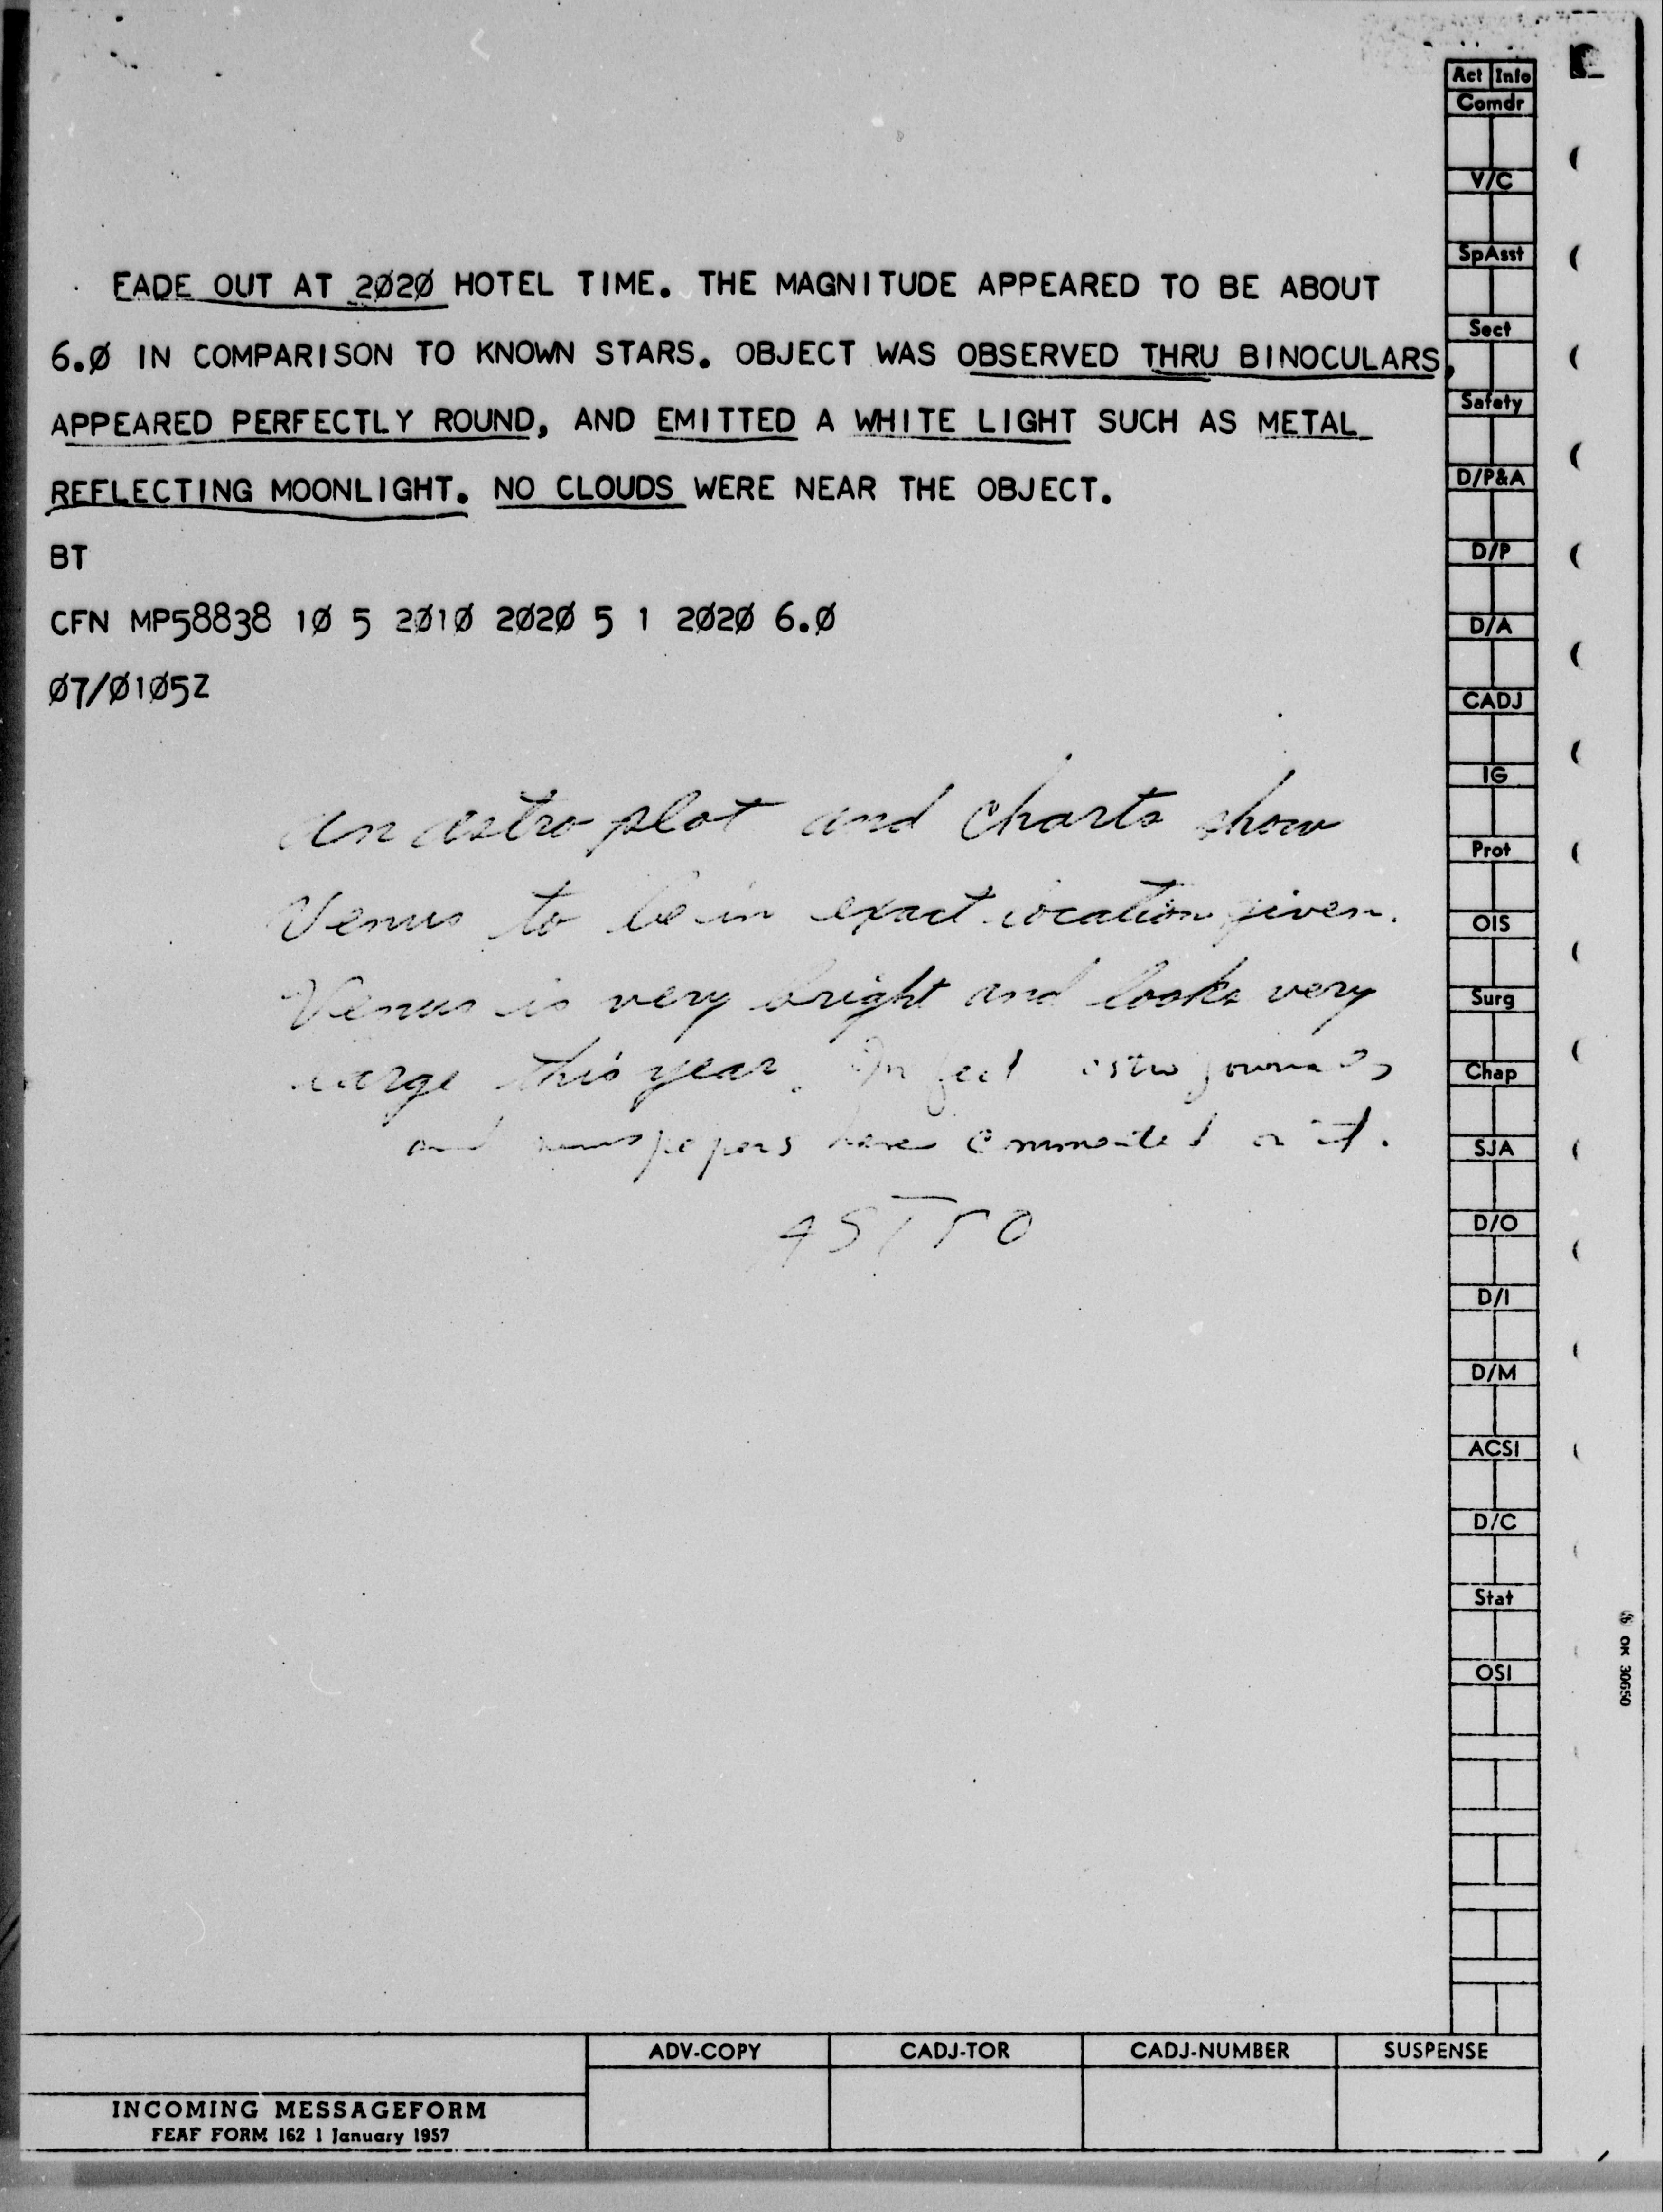 FADE OUT AT 2Ø2Ø HOTEL TIME. THE MAGNITUDE APPEARED TO BE ABOUT
6.Ø IN COMPARISON TO KNOWN STARS. OBJECT WAS OBSERVED THRU BINOCULARS,
APPEARED PERFECTLY ROUND, AND EMITTED A WHITE LIGHT SUCH AS METAL
REFLECTING MOONLIGHT. NO CLOUDS WERE NEAR THE OBJECT.
BT
CFN MP58838 1Ø 5 2Ø1Ø 2Ø2Ø 5 1 2Ø2Ø 6.Ø
Ø7/Ø1Ø5Z
An astro plot and charts show
Venus to be in exact location given.
Venus is very bright and looks very
large this year. In fact astro journals
and newspapers have commented on it.
ASTRO
Act Info
Comdr
V/C
SpAsst
Sect
Safety
D/P&A
D/P
D/A
CADJ
IG
Prot
OIS
Surg
Chap
SJA
D/O
D/I
D/M
ACSI
D/C
Stat
OSI
OK 30650
ADV-COPY CADJ-TOR CADJ-NUMBER SUSPENSE
INCOMING MESSAGEFORM
FEAF FORM 162 1 January 1957